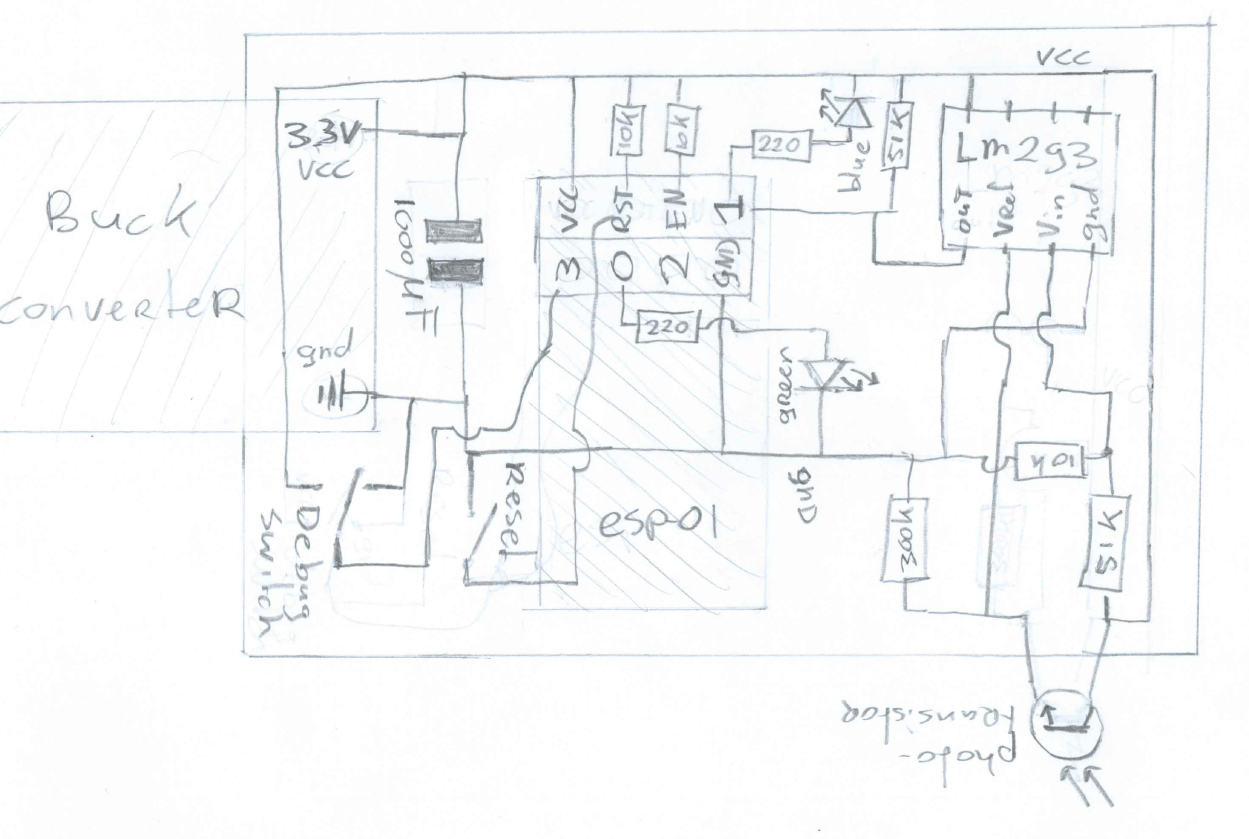 Vcc
3.3V
VCC
Buck
converter
gnd
1000µF
10k
10k
220
blue
51K
Lm293
out
Vref
Vin
gnd
VCC
RST
EN
1
3
0
2
GND
220
green
gnd
10k
300k
51K
Debug
switch
Reset
esp01
photo-
transistor